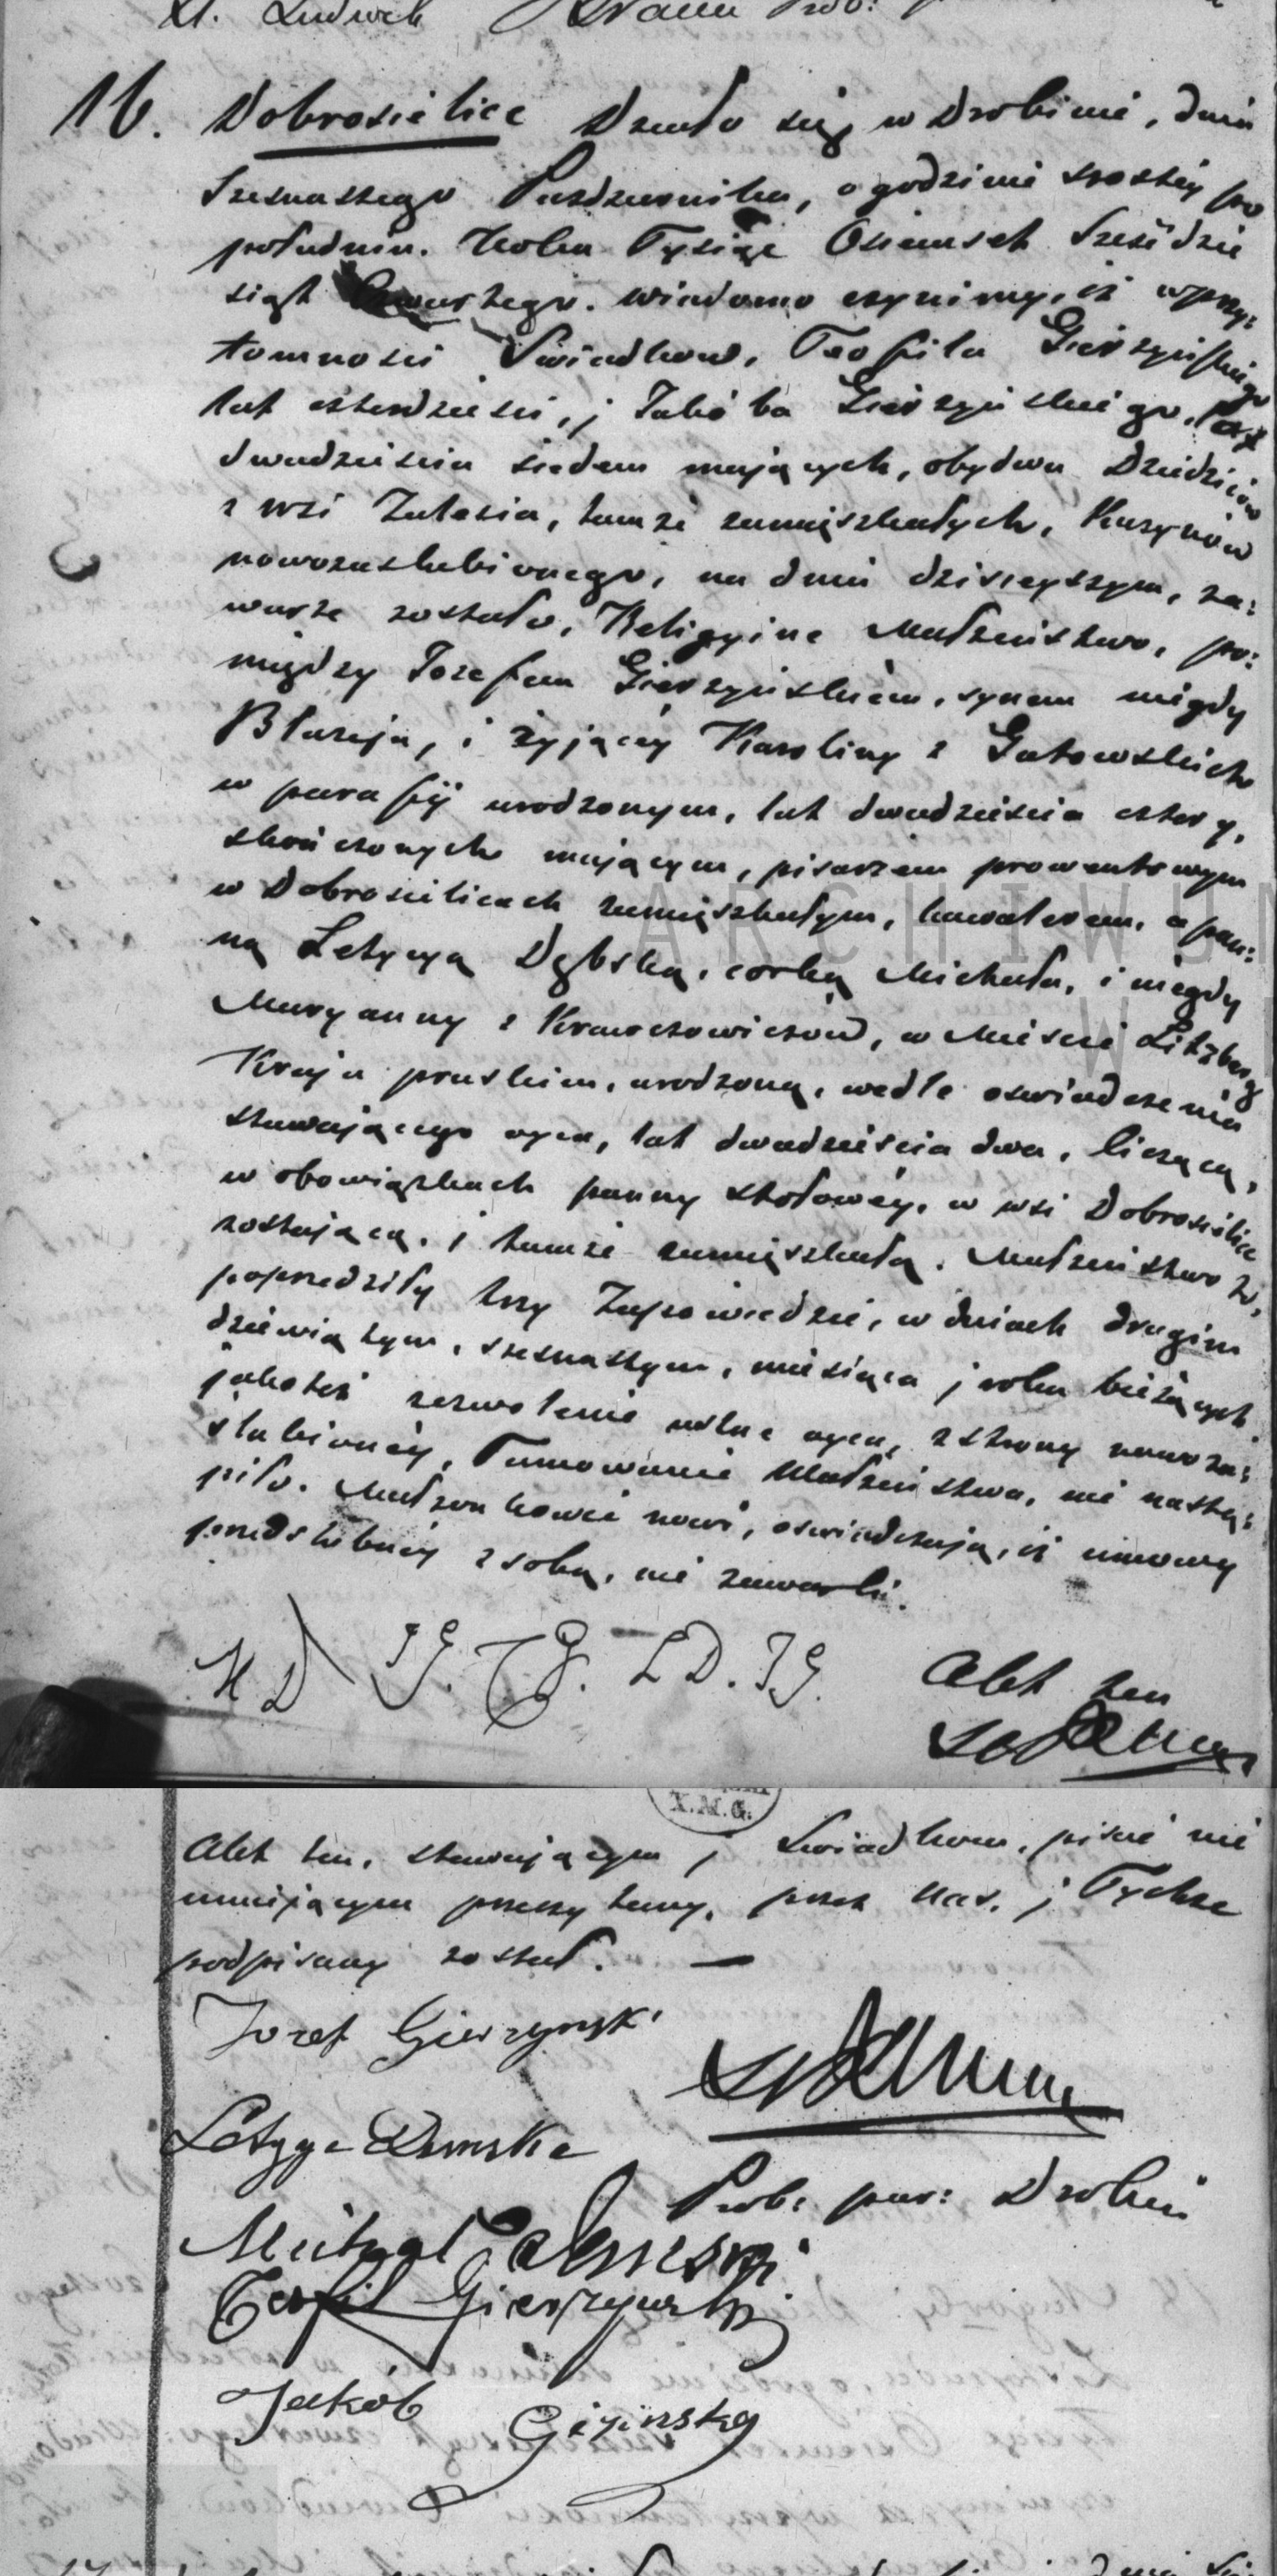 X. Ludwik
16. Dobrosielice Działo się w Drobinie, dnia
Szesnastego Października, o godzinie szóstéy po
południu. Roku Tysiąc Osiemset Sześćdzie
siąt Czwartego. wiadomo czynimy, iż w przy:
tomności Świadków, Teofila Gierzyńskiego
lat czterdzieści, i Jakóba Gierzyńskiego, lat
dwadzieścia siedem mających, obydwu Dziedziców
z wsi Zalesia, tamże zamięszkałych, Kuzynów
nowozaślubionego, na dniu dzisieyszym, za:
warte zostało, Religijne Małżeństwo, po:
między Józefem Gierzyńskiem, synem niegdy
Błażeja, i żyjącéy Karoliny z Gutowskich
w parafij urodzonym, lat dwadzieścia cztery,
skończonych mającym, pisarzem prowentowym
w Dobrosielicach zamięszkałym, kawalerem, a pan:
ną Letycyą Dębską, córką Michała, i niegdy
Maryanny z Krawczowiczów, w Mieście
Kraju pruskim, urodzoną, wedle oswiadczenia
stawającego oyca, lat dwadzieścia dwa, liczącą,
w obowiązkach panny stołowéy, w wsi Dobrosielice
zostającą, i tamże zamięszkałą. Małżeństwo to,
poprzedziły trzy Zapowiedzie, w dniach drugim
dziewiątym, szesnastym, miesiąca i roku bieżących
jakoteż zezwolenie ustne oyca, z strony nowoza:
ślubionéy, Tamowanie Małżeństwa, nie nastą:
piło. Małżonkowie nowi, oświadczają, iż umowy
przedślubnéy z sobą, nie zawarli.
M D J G. T G. L D. J G. Akt ten
Akt ten, stawającym i Świadkom, pisać nie
umiejącym przeczytany, przez Nas, i Tychże
podpisany został. —
Jozef Gierzynski
Letycya Dembska
Prob: par: Drobin
Michał Dembski
Teofil Gierzynski
Jakób